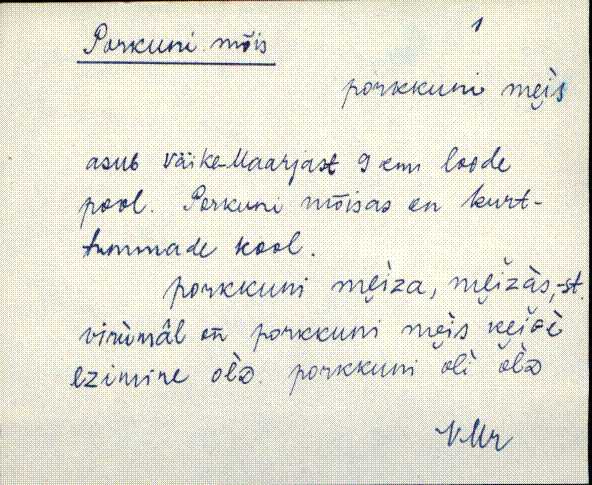 1
Porkuni mõis
porkkuni mẹ̀is
asub Väike-Maarjast 9 km loode
pool. Porkuni mõisas on kurt-
tummade kool.
porkkuni mẹìza, mẹìzàs, -st.
virùmâl oñ porkkuni mẹ̀is
ezimine olà. porkkuni olì olà
VMr